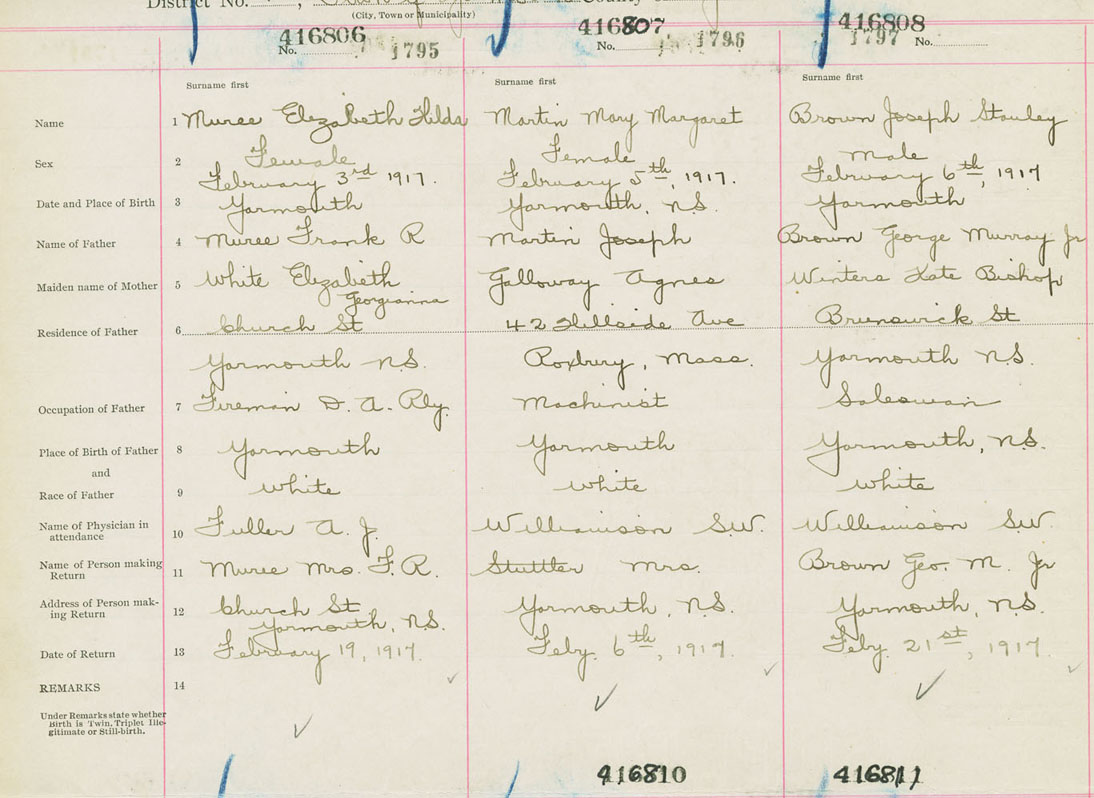 District No. County
(City, Town or Municipality)
416806 416807 416808
No. 1795 No. 1796 1797 No.
Surname first Surname first Surname first
Name 1 Muree Elizabeth Hilda Martin Mary Margaret Brown Joseph Stanley
Sex 2 Female Female male
February 3rd 1917. February 5th, 1917. February 6th, 1917
Date and Place of Birth 3 Yarmouth Yarmouth, N.S. Yarmouth
Name of Father 4 Muree Frank R Martin Joseph Brown George Murray Jr
Maiden name of Mother 5 White Elizabeth Galloway Agnes Winters Kate Bishop
Georgianna
Residence of Father 6 Church St 42 Hillside Ave Brunswick St
Yarmouth N.S. Roxbury, Mass. Yarmouth N.S.
Occupation of Father 7 Fireman D. A. Rly. Machinist Salesman
Place of Birth of Father 8 Yarmouth Yarmouth Yarmouth, N.S.
and
Race of Father 9 white white white
Name of Physician in
attendance 10 Fuller A. J. Williamson S.W. Williamson S.W.
Name of Person making
Return 11 Muree Mrs. F. R. Stuttler Mrs. Brown Geo. M. Jr
Address of Person mak-
ing Return 12 Church St Yarmouth, N.S. Yarmouth, N.S.
Yarmouth, N.S.
Date of Return 13 February 19, 1917. Feby. 6th, 1917 Feby. 21st, 1917
REMARKS 14
Under Remarks state whether
Birth is Twin, Triplet Ille-
gitimate or Still-birth.
416810 416811